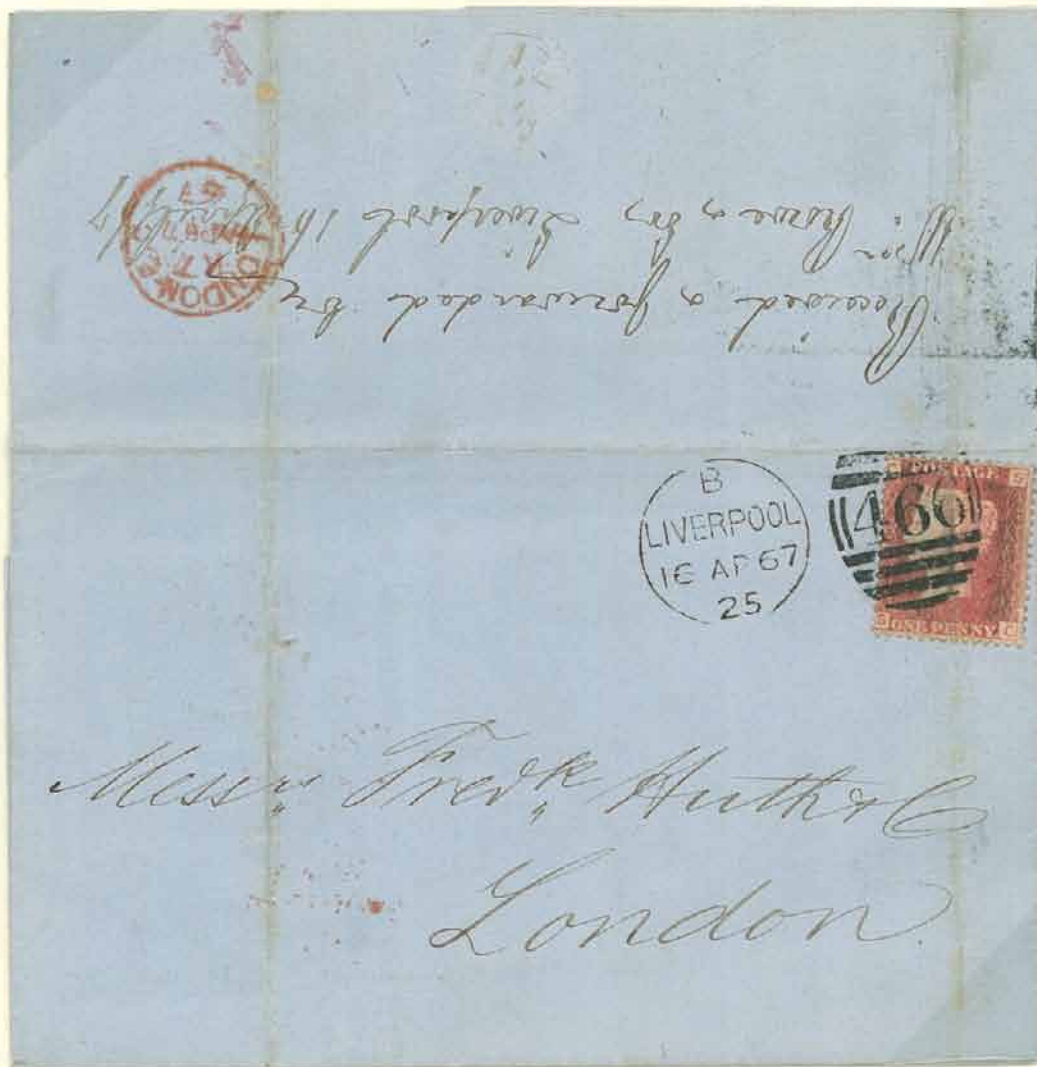 Received & forwarded by
Liverpool 16 April / 67
LONDON
67
B
LIVERPOOL
16 AP 67
25
466
POSTAGE
ONE PENNY
Messrs Fredk Huth & Co
London